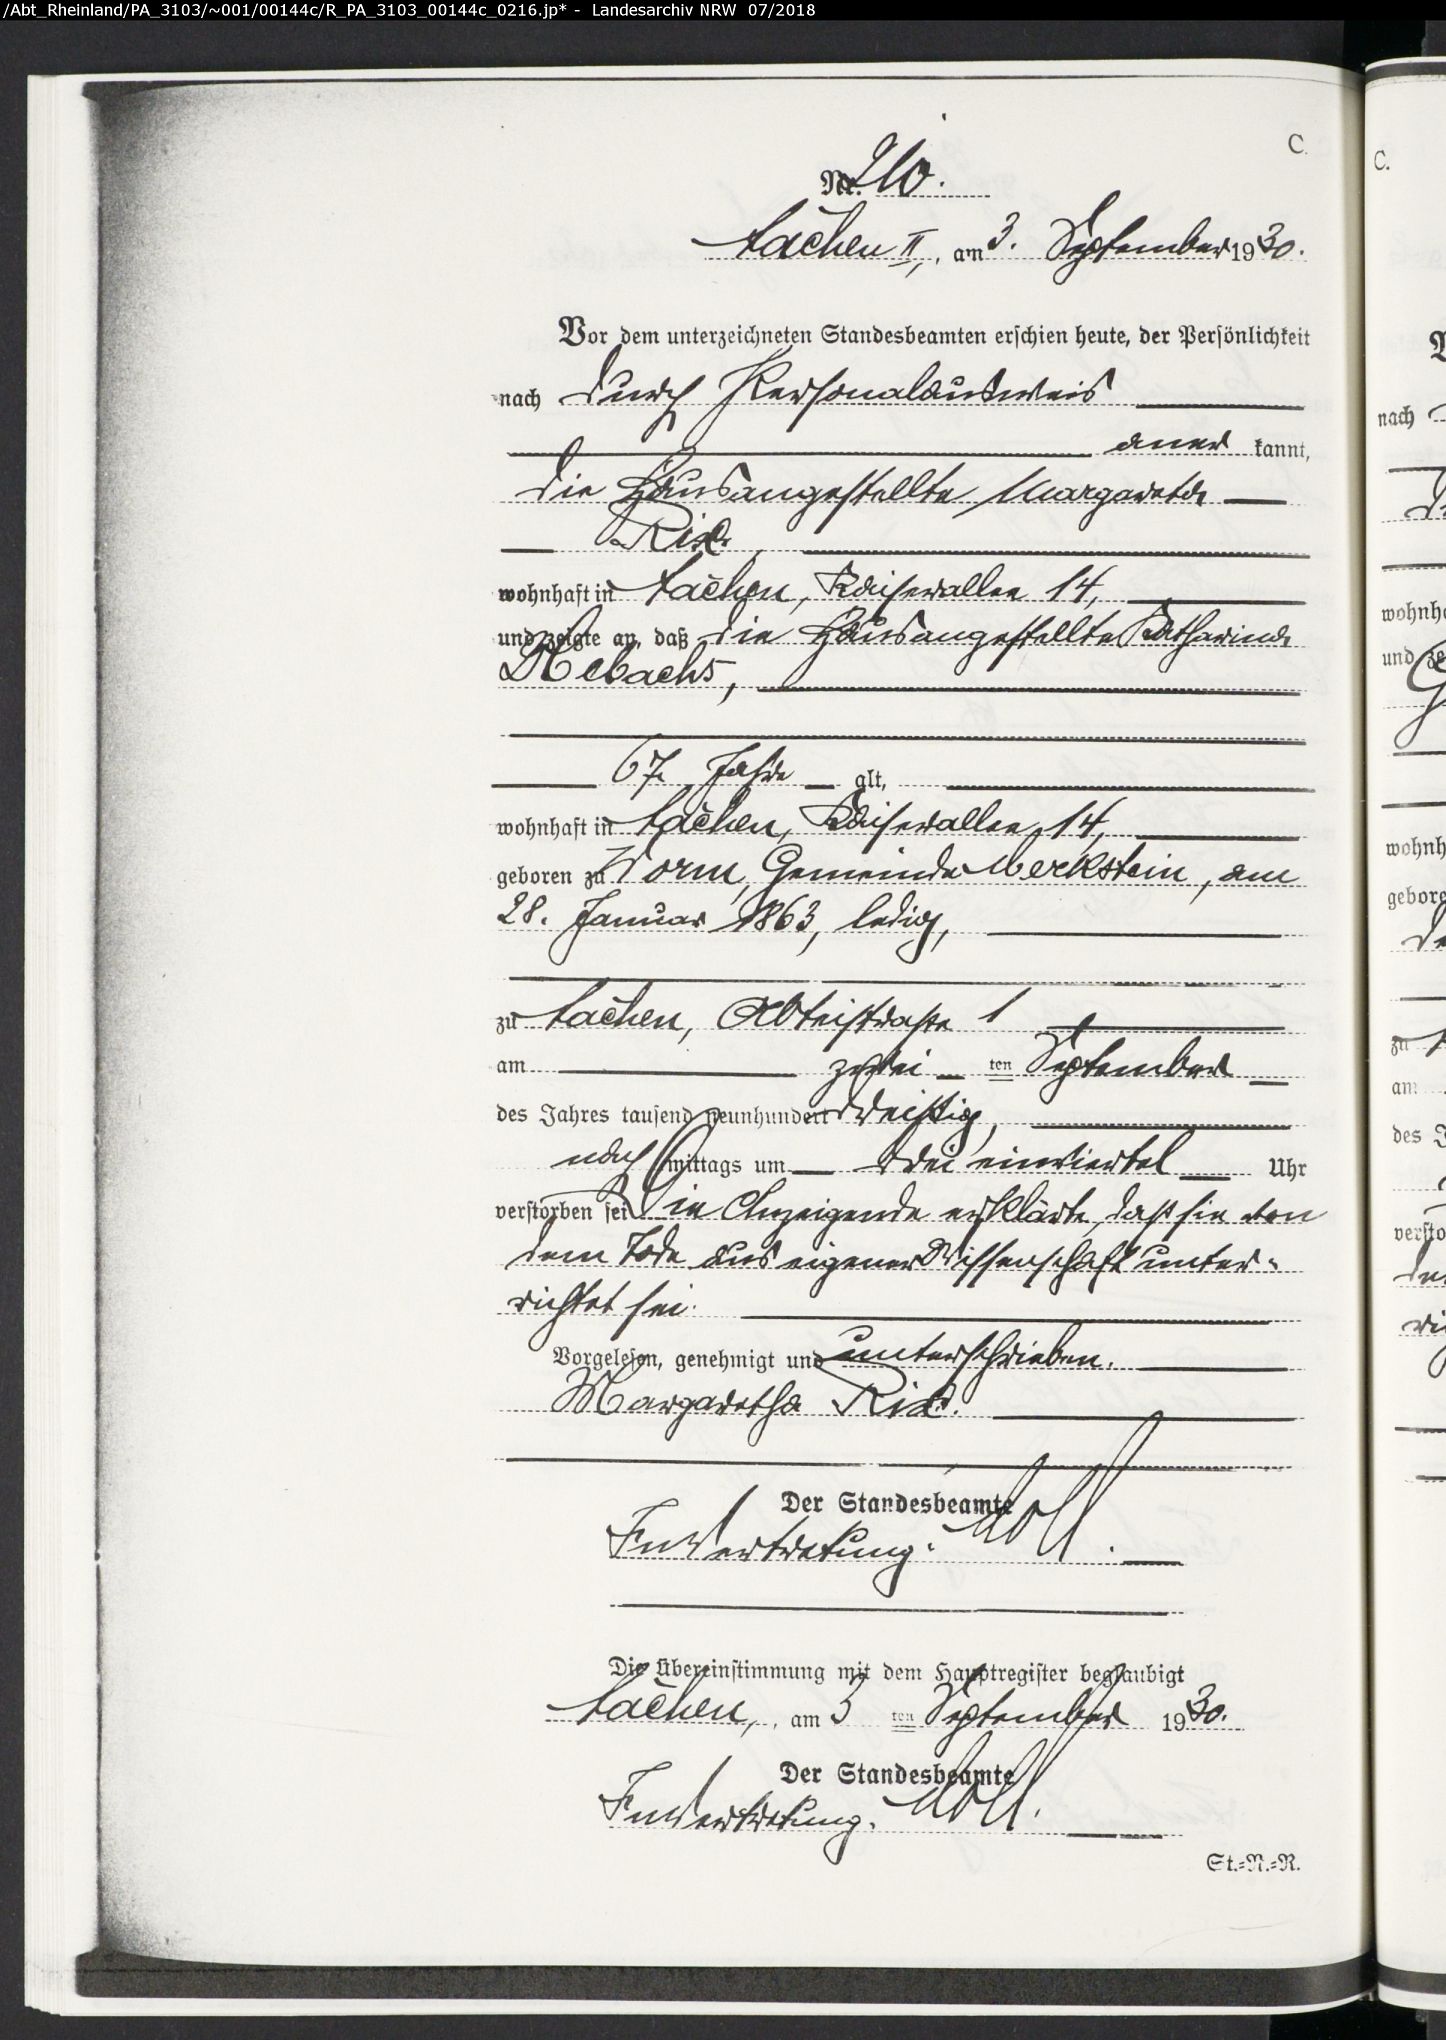 /Abt_Rheinland/PA_3103/~001/00144c/R_PA_3103_00144c_0216.jp* - Landesarchiv NRW 07/2018
C.
Nr. 210.
Aachen II, am 3. September 1930.
Vor dem unterzeichneten Standesbeamten erschien heute, der Persönlichkeit
nach durch Personalausweis
aner kannt,
die Hausangestellte Margaretha
wohnhaft in Aachen, Kaiserallee 14,
und zeigte an, daß die Hausangestellte Katharina
67 Jahre alt,
wohnhaft in Aachen, Kaiserallee 14,
geboren zu Worm, Gemeinde Merkstein, am
28. Januar 1863, ledig,
zu Aachen, Abteistraße 1
am zwei ten September
des Jahres tausend neunhundert dreißig,
nach mittags um drei einviertel Uhr
verstorben sei. Die Anzeigende erklärte, daß sie von
dem Tode aus eigener Wissenschaft unter-
richtet sei.
Vorgelesen, genehmigt und unterschrieben.
Margaretha
Der Standesbeamte
In Vertretung: Moll.
Die Übereinstimmung mit dem Hauptregister beglaubigt
Aachen, am 3 ten September 1930.
Der Standesbeamte
In Vertretung. Moll.
St.=N.=R.
C.
nach
wohnh
und ze
wohnh
gebore
zu
am
des J
versto